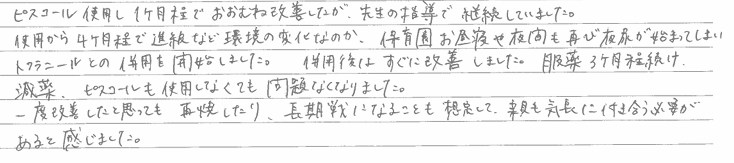 ピスコール使用し1ヶ月程でおおむね改善したが、先生の指導で継続していました。
使用から4ヶ月程で進級など環境の変化なのか、保育園お昼寝や夜間も再び夜尿が始まってしまい
トフラニールとの併用を開始しました。 併用後はすぐに改善しました。服薬3ヶ月程続け
減薬、ピスコールも使用しなくても問題なくなりました。
一度改善したと思っても再燃したり、長期戦になることも想定して、親も気長に付き合う必要が
あると感じました。